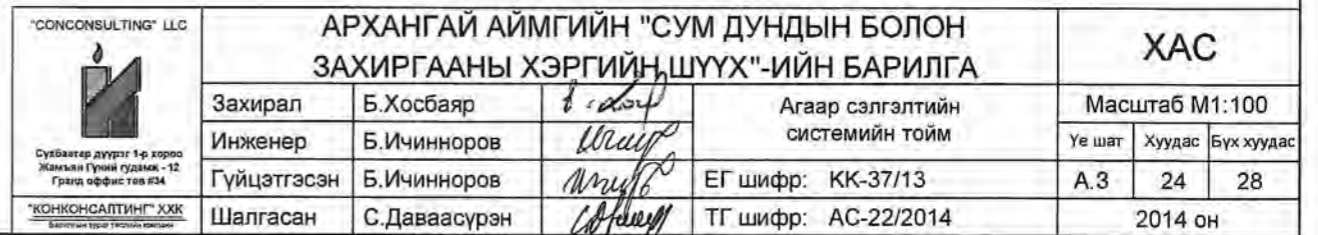 "CONCONSULTING" LLC
Сүхбаатар дүүрэг 1-р хороо
Жамъян Гүний гудамж - 12
Гранд оффис төв #34
"КОНКОНСАЛТИНГ" ХХК
АРХАНГАЙ АЙМГИЙН "СУМ ДУНДЫН БОЛОН
ЗАХИРГААНЫ ХЭРГИЙН ШҮҮХ"-ИЙН БАРИЛГА
ХАС
Захирал Б.Хосбаяр
Инженер Б.Ичинноров
Гүйцэтгэсэн Б.Ичинноров
Шалгасан С.Даваасүрэн
Агаар сэлгэлтийн
системийн тойм
ЕГ шифр: КК-37/13
ТГ шифр: АС-22/2014
Масштаб М1:100
Үе шат Хуудас Бүх хуудас
А.З 24 28
2014 он